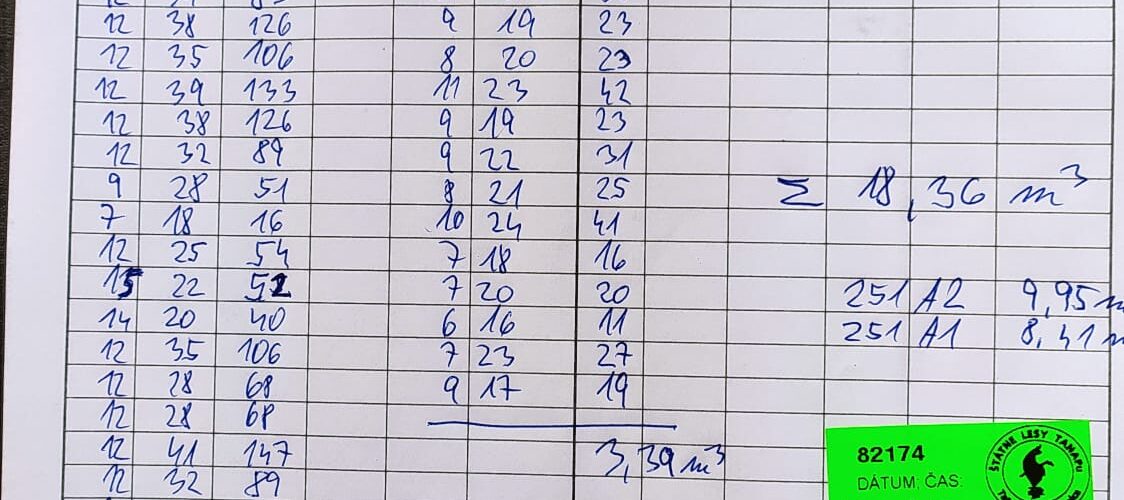 12 38 126 9 19 23
12 35 106 8 20 23
12 39 133 11 23 42
12 38 126 9 19 23
12 32 89 9 22 31
9 28 51 8 21 25
Σ 18,36 m³
7 18 16 10 24 41
12 25 54 7 18 16
15 22 52 7 20 20
251 A2 9,95 m
14 20 40 6 16 11
251 A1 8,41 m
12 35 106 7 23 27
12 28 68 9 17 19
12 28 68
12 41 147 3,39 m³
12 32 89
82174
DÁTUM, ČAS:
ŠTÁTNE LESY TANAPU